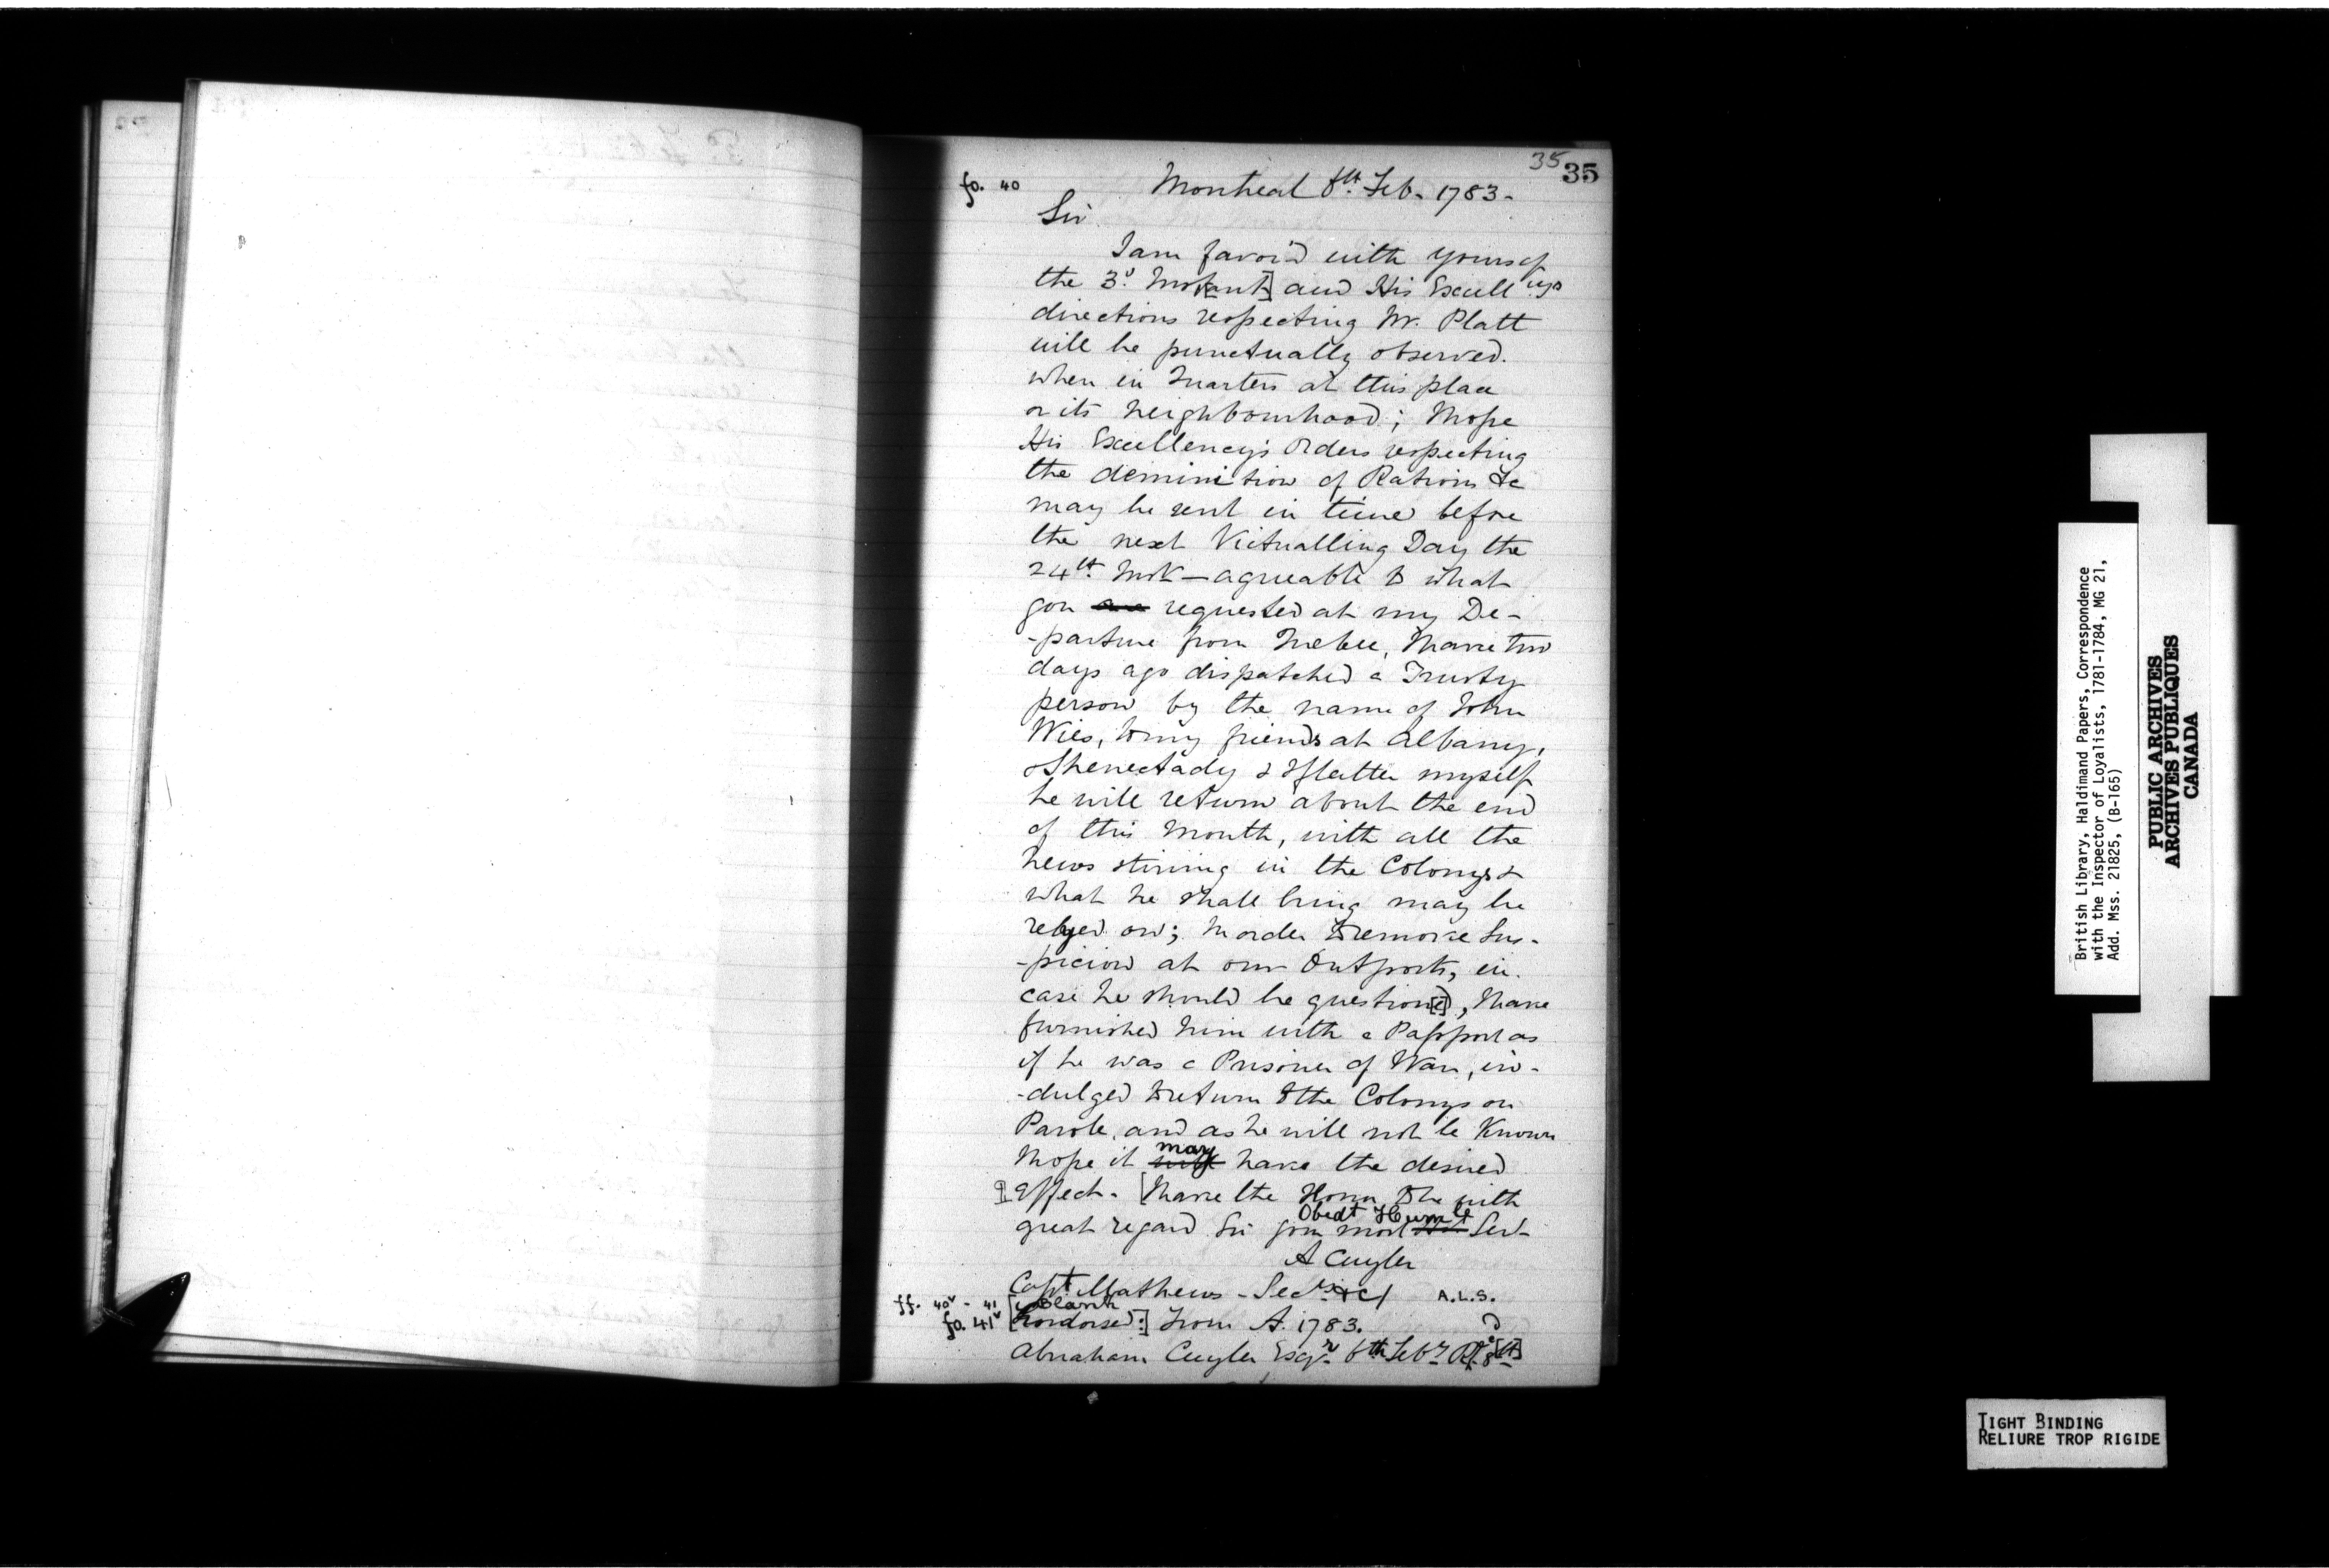 35 35
fo. 40
Montreal 6th. Feb. 1783-
Sir
I am favor'd with yours of
the 3d. Inst[ant] and His Excellcys
directions respecting Mr. Platt
will be punctually observed.
when in Quarters at this place
or its neighbourhood; I hope
His Excellency's Orders respecting
the deminition of Rations &c
may be sent in time before
the next Victualling Day the
24th. Inst — agreeable to what
you requested at my De-
-parture from Quebec, I have two
days ago dispatched a Trusty
person by the name of John
Wies, to my friends at Albany,
Shenectady & I flatter myself
he will return about the end
of this Month, with all the
news stiring in the Colonys &
what he shall bring may be
relyed on; In order to remove Sus-
-picion at our Outposts, in
case he should be question[e]d, I have
furnished him with a Passport as
if he was a Prisoner of War, in-
-dulged to return to the Colonys on
Parole, and as he will not be Known
I hope it may have the desired
Effect. [I have the Honor to be with
great regard Sir your most Obedt Humle Servt
A Cuyler
Capt Mathews - Secry &c/ A.L.S.
ff. 40v - 41 [Blank
fo. 41v Endorsed:] From A. 1783.
Abraham Cuyler Esqr. 6th Febr Rd. 8[th]
British Library, Haldimand Papers, Correspondence
with the Inspector of Loyalists, 1781-1784, MG 21,
Add. Mss. 21825, (B-165)
PUBLIC ARCHIVES
ARCHIVES PUBLIQUES
CANADA
TIGHT BINDING
RELIURE TROP RIGIDE